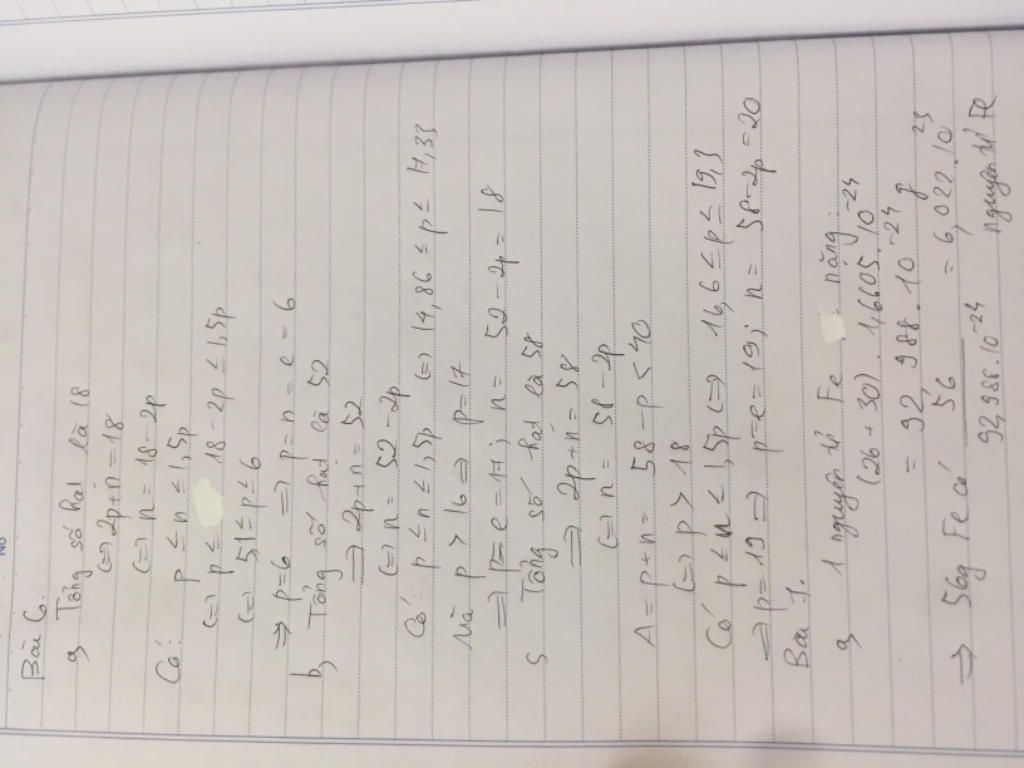 Bài 6:
a, Tổng số hạt là 18
(=) 2p+n = 18
(=) n = 18 - 2p
Có: p ≤ n ≤ 1,5p
(=) p ≤ 18 - 2p ≤ 1,5p
(=) 5,1 ≤ p ≤ 6
=> p=6 => p = n = e = 6
b, Tổng số hạt là 52
=> 2p+n = 52
(=) n = 52 - 2p
Có: p ≤ n ≤ 1,5p (=) 14,86 ≤ p ≤ 17,33
Mà p > 16 => p=17
=> p=e=17; n = 52-2p = 18
c, Tổng số hạt là 58
=> 2p+n = 58
(=) n = 58-2p
A = p+n = 58-p < 40
(=) p > 18
Có p ≤ n ≤ 1,5p (=> 16,6 ≤ p ≤ 19,3
=> p=19 => p=e=19; n = 58-2p = 20
Bài 7.
a, 1 nguyên tử Fe nặng:
(26+30). 1,6605.10⁻²⁴
= 92,988.10⁻²⁴ g
=> 56g Fe có 56 / 92,988.10⁻²⁴ = 6,022.10²³
nguyên tử Fe